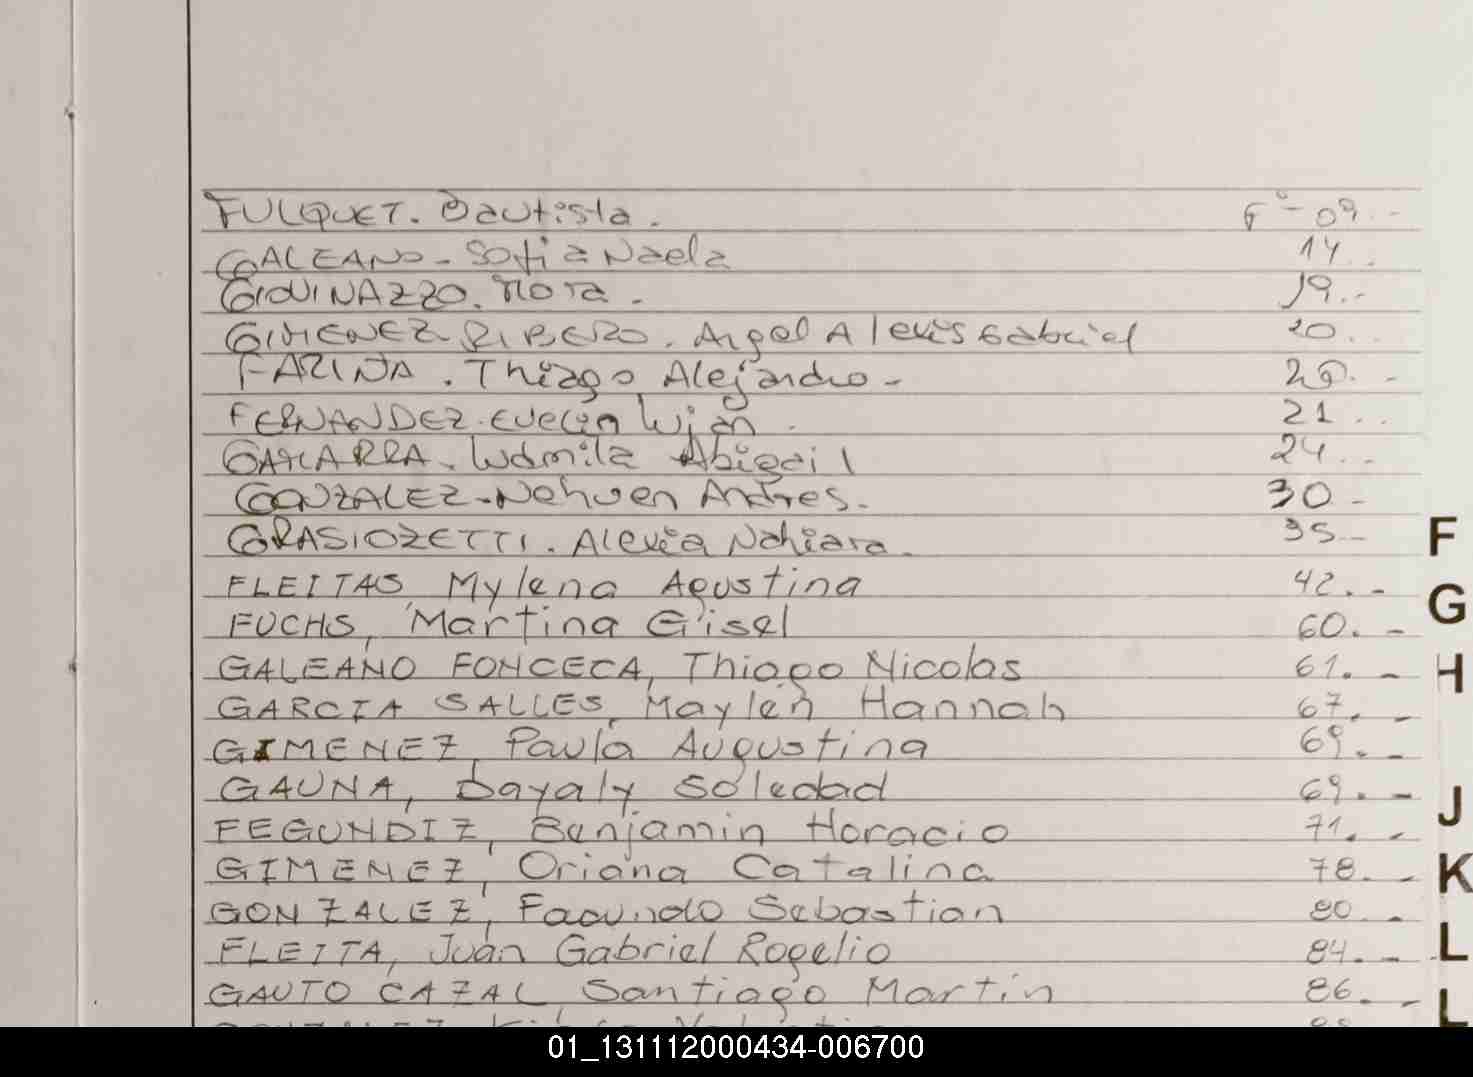 FULQUET. Bautista. F°- 09.-
GALEANO- Sofia Naela 14..
GIOVINAZZO. Mora. 19.-
GIMENEZ RIBERO. Angel Alexis Gabriel 20..
FARINA. Thiago Alejandro- 20.-
FERNANDEZ. Evelyn Wian. 21...
GAMARRA. Ludmila Abigail 24..
GONZALEZ-Nehuen Andres. 30-
GRASIOZETTI. Alexia Nahiara. 35-
F
FLEITAS, Mylena Agustina 42.-
G
FUCHS, Martina Gisel 60.-
GALEANO FONCECA, Thiago Nicolas 61.-
H
GARCIA SALLES, Maylen Hannah 67.-
GIMENEZ, Paula Augustina 69.-
GAUNA, Dayaly Soledad 69.-
J
FEGUNDIZ, Benjamin Horacio 71.-
GIMENEZ, Oriana Catalina 78.-
K
GONZALEZ, Facundo Sebastian 80.-
FLEITA, Juan Gabriel Rogelio 84.-
L
GAUTO CAZAL, Santiago Martin 86.-
L
01_131112000434-006700